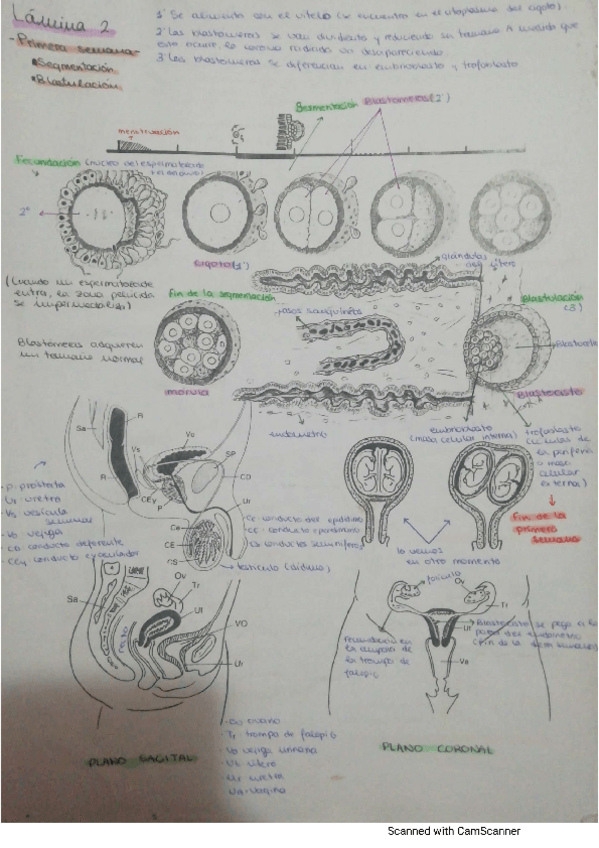 Lámina 2
- Primera semana -
• Segmentación
• Blastulación
1° Se alimenta con el vitelo (se encuentra en el citoplasma del cigoto).
2° Las blastómeras se van dividiendo y reduciendo su tamaño. A medida que
esto ocurre, la corona radiada va desapareciendo
3° Las blastómeras se diferencian en embrioblasto y trofoblasto
Segmentación
Blastómeras (2°)
menstruación
Fecundación (núcleo del espermatozoide
2°
Cigoto (1°)
(Cuando un espermatozoide
entra, la zona pelúcida
se impermeabiliza)
Fin de la segmentación
glándulas del útero
vasos sanguíneos
Blastulación
(3°)
Blastómeras adquieren
un tamaño normal
mórula
Blastocele
Blastocisto
endometrio
embrioblasto
(masa celular interna)
trofoblasto
(células de
la periferia
o masa
celular
externa)
fin de la
primera
semana
lo vemos
en otro momento
Sa
R
Vs
Vo
SP
CD
R
CEy
P
Ur
Ca
CE
CS
P: próstata
Ur: uretra
Vs: vesícula
seminal
Vo: vejiga
CD: conducto deferente
CEy: conducto eyaculador
CE: conducto epididimario
CS: conductos seminíferos
testículo (dídimo)
Ov
Tr
Ut
Sa
recto
VO
Ur
folículo
Ov
Tr
Ut
Va
Fecundación en
la ampolla de
la trompa de
falopio
Blastocisto se pega a la
pared del endometrio
Ov: ovario
Tr: trompa de falopio
Vo: vejiga urinaria
Ut: útero
Ur: uretra
Va: vagina
PLANO SAGITAL
PLANO CORONAL
Scanned with CamScanner